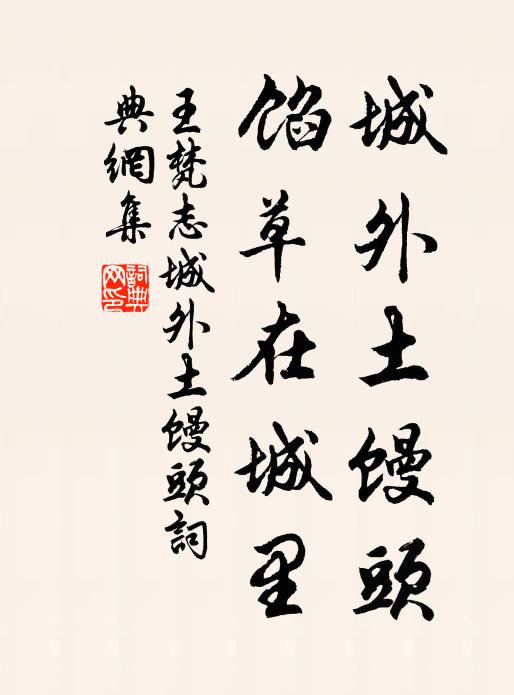 城外土馒頭
馅草在城里
王梵志城外土馒頭詞
典網集
詞典
网印